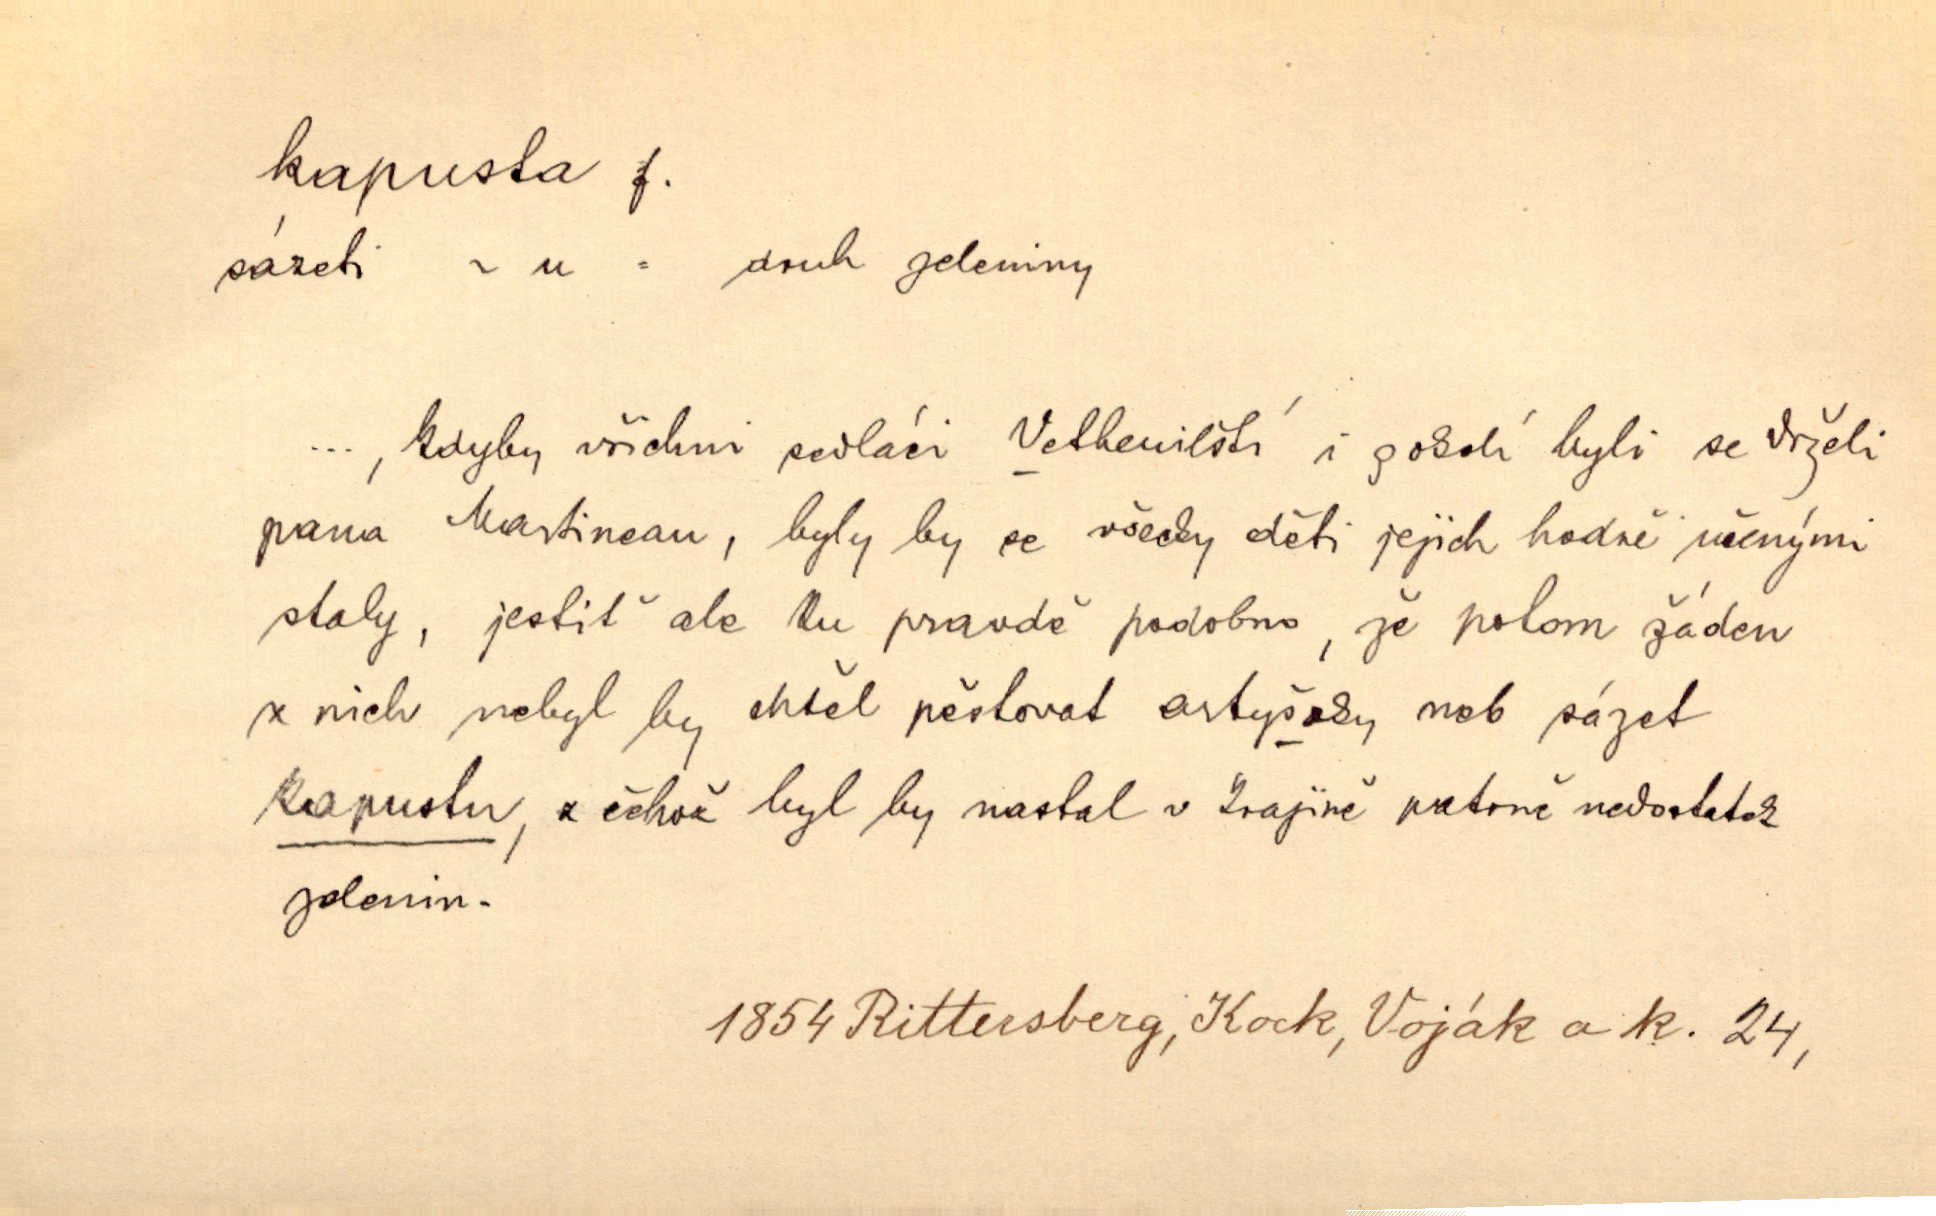 kapusta f.
sázeti ~ u = druh zeleniny
..., kdyby všichni sedláci Vetheuilští i byli se drželi
pana Martineau, byly by se všecky děti jejich hodně učenými
staly, jestiť ale ku pravdě podobno, že potom žáden
z nich nebyl by chtěl pěstovat artyšoky neb sázet
kapustu, z čehož byl by nastal v krajině patrně nedostatek
zelenin.
1854 Rittersberg, Kock, Voják a k. 24,